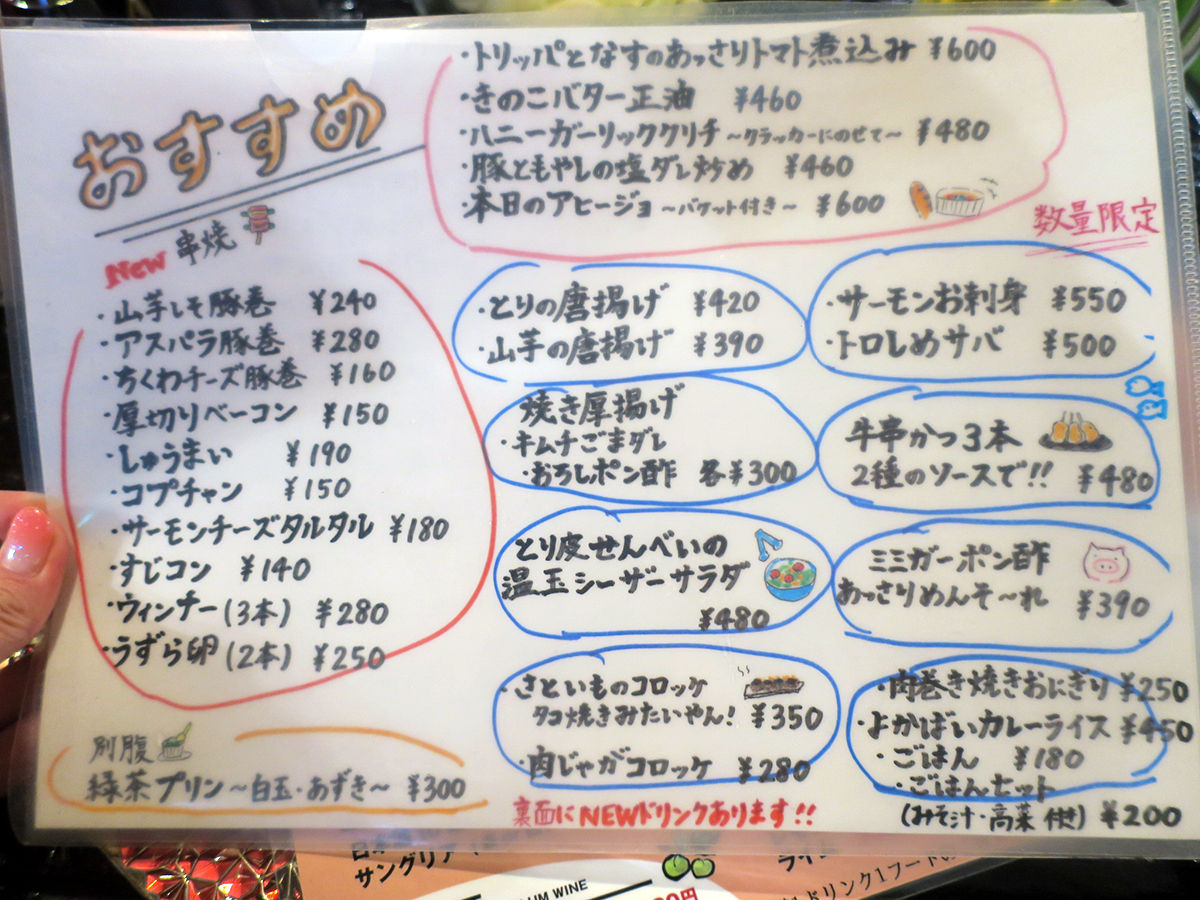 おすすめ
・トリッパとなすのあっさりトマト煮込み ¥600
・きのこバター正油 ¥460
・ハニーガーリッククリチ ～クラッカーにのせて～ ¥480
・豚ともやしの塩ダレ炒め ¥460
・本日のアヒージョ ～バケット付き～ ¥600
数量限定
New 串焼
・山芋しそ豚巻 ¥240
・アスパラ豚巻 ¥280
・ちくわチーズ豚巻 ¥160
・厚切りベーコン ¥150
・しゅうまい ¥190
・コプチャン ¥150
・サーモンチーズタルタル ¥180
・すじコン ¥140
・ウィンナー(3本) ¥280
・うずら卵(2本) ¥250
別腹
緑茶プリン～白玉・あずき～ ¥300
・とりの唐揚げ ¥420
・山芋の唐揚げ ¥390
焼き厚揚げ
・キムチごまダレ
・おろしポン酢 各¥300
とり皮せんべいの
温玉シーザーサラダ
¥480
・さといものコロッケ
タコ焼きみたいやん! ¥350
・肉じゃがコロッケ ¥280
・サーモンお刺身 ¥550
・トロしめサバ ¥500
牛串かつ3本
2種のソースで!! ¥480
ミミガーポン酢
あっさりめんそ～れ ¥390
・肉巻き焼きおにぎり ¥250
・よかばいカレーライス ¥450
・ごはん ¥180
・ごはんセット
(みそ汁・高菜 付) ¥200
裏面にNEWドリンクあります!!
サングリア
UM WINE
ドリンク1フード